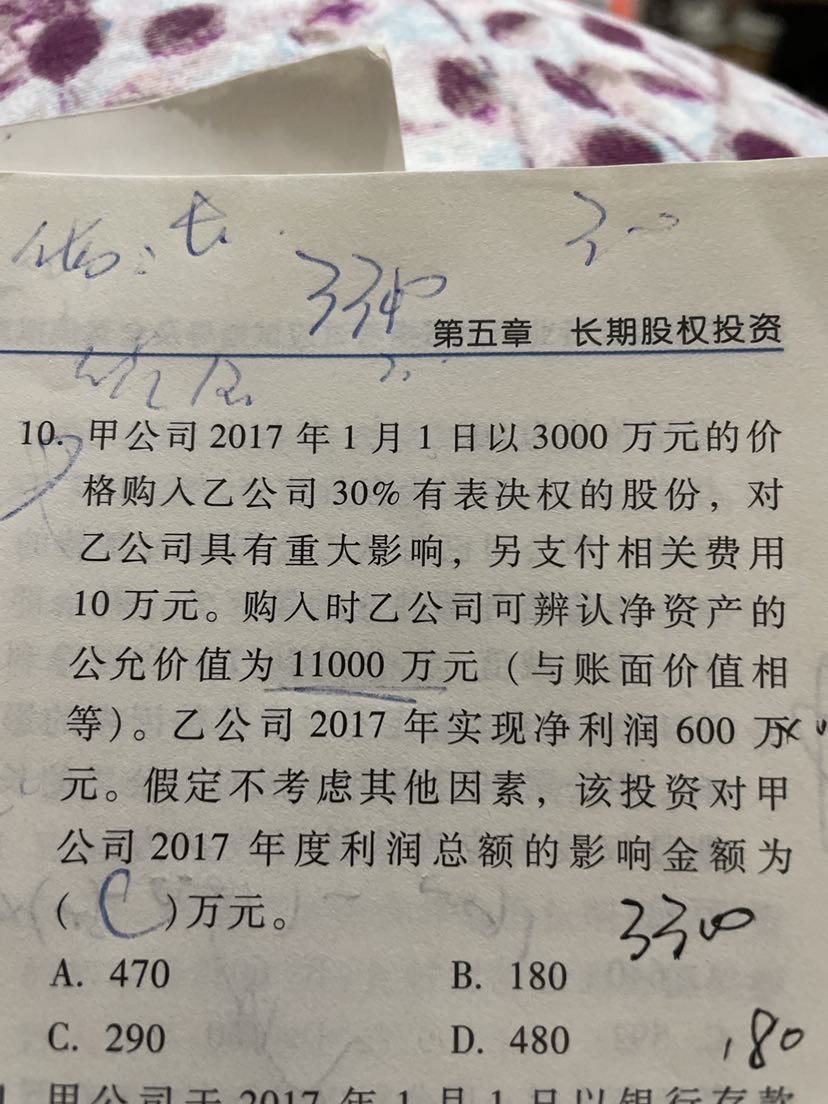 3340
第五章 长期股权投资
10. 甲公司 2017 年 1 月 1 日以 3000 万元的价
格购入乙公司 30% 有表决权的股份，对
乙公司具有重大影响，另支付相关费用
10 万元。购入时乙公司可辨认净资产的
公允价值为 11000 万元（与账面价值相
等）。乙公司 2017 年实现净利润 600 万
元。假定不考虑其他因素，该投资对甲
公司 2017 年度利润总额的影响金额为
( C )万元。
3300
A. 470 B. 180
C. 290 D. 480
180
甲公司于 2017 年 1 月 1 日以银行存款